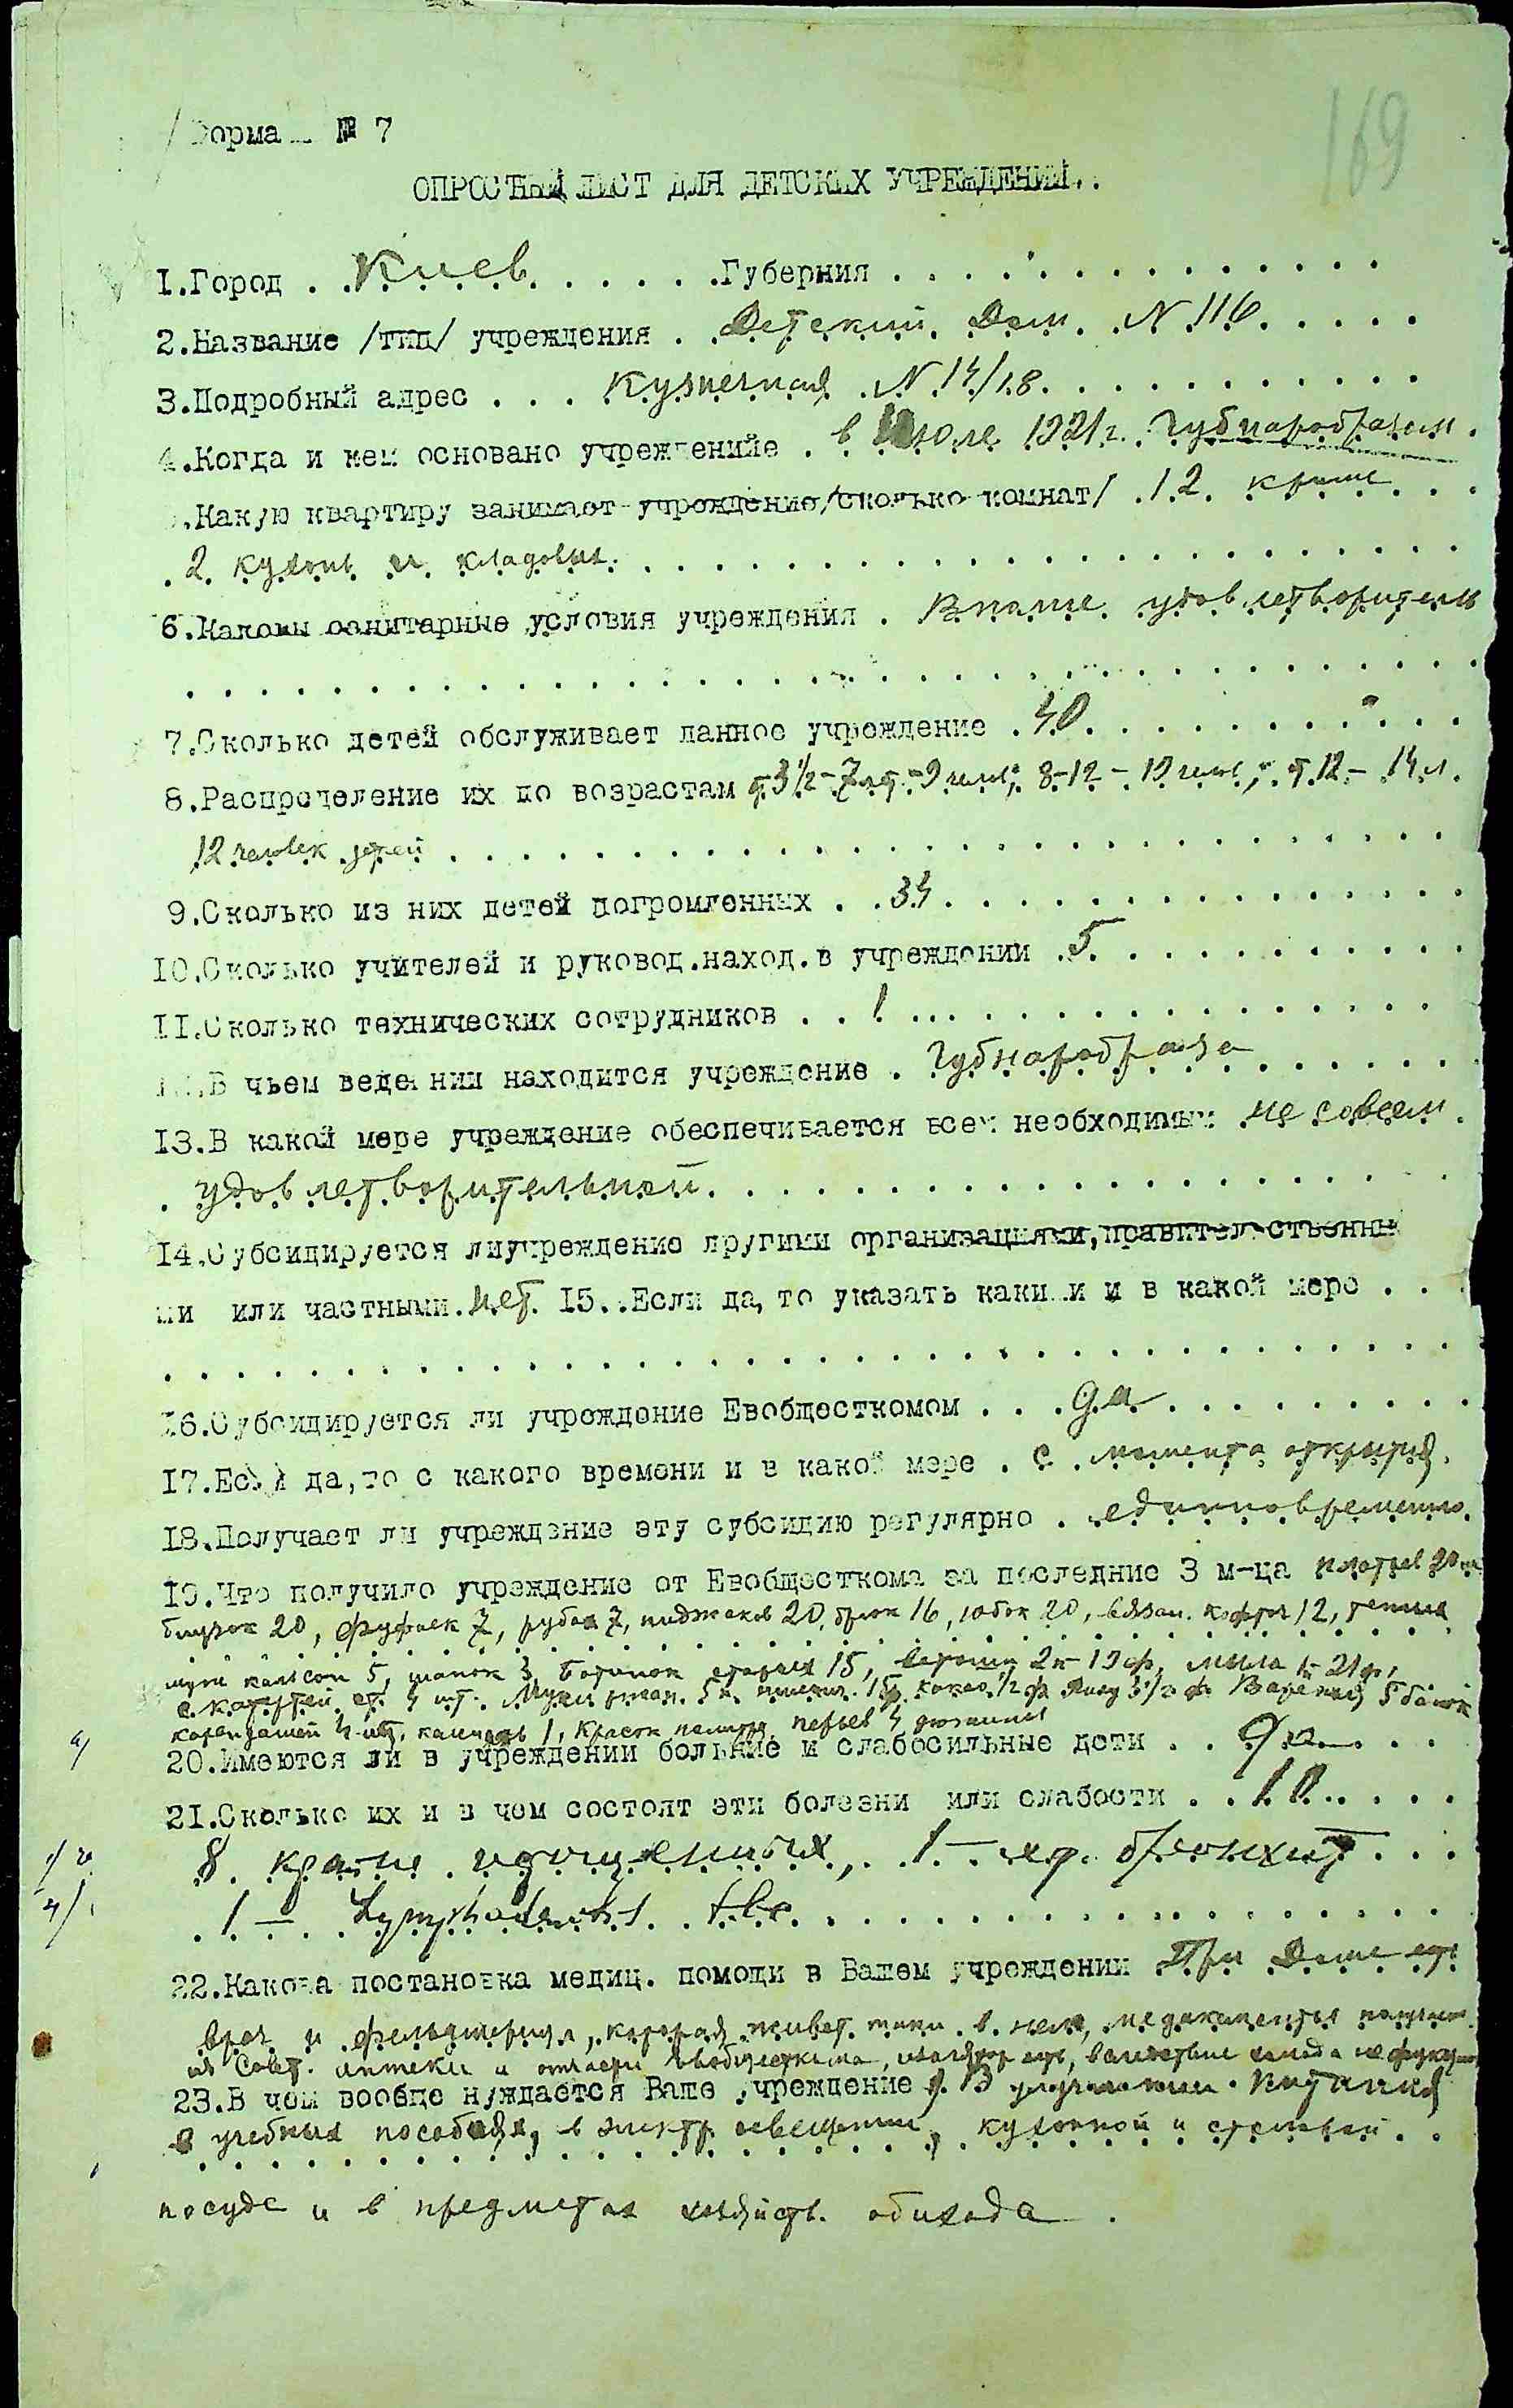 169
Форма № 7
ОПРОСНЫЙ ЛИСТ ДЛЯ ДЕТСКИХ УЧРЕЖДЕНИЙ.
1.Город . . Киев . . . . . .Губерния . . . . . . . . . . . . . .
2.Название /тип/ учреждения . . Детский Дом N 116 . . . . .
3.Подробный адрес . . . Кузнечная N 14/18 . . . . . . . . . . .
4.Когда и кем основано учреждениие . в Июле 1921 г. Губнаробразом .
.Какую квартиру занимает учреждение/сколько комнат/ . 12. кроме . . .
. 2 кухонь и кладовых . . . . . . . . . . . . . . . . . . . . . .
6.Каковы санитарные условия учреждения . Вполне удовлетворительн
. . . . . . . . . . . . . . . . . . . . . . . . . . . . . .
7.Сколько детей обслуживает данное учреждение . 40 . . . . . . . . . . .
8.Распределение их по возрастам от 3½ - 7 лет - 9 челов; 8-12 - 19 челов; от 12 - 14 л.
12 человек детей . . . . . . . . . . . . . . . . . . . . . . . .
9.Сколько из них детей погромленных . . 34 . . . . . . . . . . . . . . .
10.Сколько учителей и руковод.наход.в учреждении . 5 . . . . . . . . . . .
11.Сколько технических сотрудников . . 1 . . . . . . . . . . . . . . . .
.В чьем ведении находится учреждение . Губнаробраза . . . . . . .
13.В какой мере учреждение обеспечивается всем необходимым не совсем .
. удовлетворительной . . . . . . . . . . . . . . . . . . . .
14.Субсидируется лиучреждение другими организациями,правительственны
ми или частными. Нет. 15..Если да, то указать каки.и и в какой мере . .
. . . . . . . . . . . . . . . . . . . . . . . . . . . . . .
16.Субсидируется ли учреждение Евобщесткомом . . . да . . . . . . . . .
17.Если да,то с какого времени и в какой мере . с момента открытия .
18.Получает ли учреждение эту субсидию регулярно . единовременно .
19.Что получило учреждение от Евобщесткома за последние 3 м-ца платьев 20
блузок 20, фуфаек 7, рубах 7, пиджаков 20, брюк 16, юбок 20, вязан. кофточ 12,
кальсон 5, шапок 3, Ботинок старых 15, 2 п 19 ф, мыла 1 п 21 ф,
скатертей ст. 4 шт. Муки 5 п. 15 ф. какао ½ ф Варенья 5 банок
карандашей 4 шт. 1, красок палитра, перьев 4 дюжины
20.Имеются ли в учреждении больные и слабосильные дети . . Да . . .
21.Сколько их и в чем состоят эти болезни или слабости . . 10 . . . . .
8 крайне истощенных, 1 - хр. бронхит . . .
. 1 - . Lymphadenitis tbc . . . . . . . . . . . . . . . . .
22.Какова постановка медиц. помощи в Вашем учреждении При Доме есть
врач и фельдшерица, которая живет в нем, медикаменты получает
из Совет. аптеки и отчасти Евобщесткома, изолятор есть, вследствие холода не
23.В чем вообще нуждается Ваше учреждение . В улучшении питания
в учебных пособиях, в электр. освещении, кухонной и столовой . .
посуде и в предметах хозяйств. обихода .